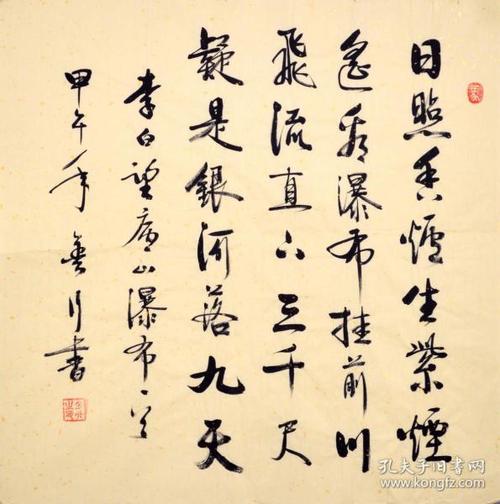 日照香爐生紫煙
遙看瀑布挂前川
飛流直下三千尺
疑是銀河落九天
李白望庐山瀑布一首
甲午年月書
孔夫子旧书网
www.kongfz.com